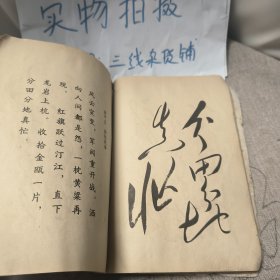 实物拍摄
三线杂货铺
风云突变,军阀重开战。洒
向人间都是怨,一枕黄粱再
现。 红旗跃过汀江,直下
龙岩上杭。收拾金瓯一片,
分田分地真忙。
分田分地
真忙